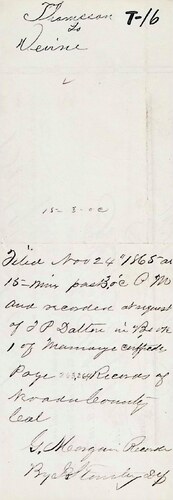 Thomsson T-16
to
Devine
Filed Nov 24th 1865 at
15 min past 3 o'c P M
and recorded at request
of T P Dalton in Book
1 of Marriage certificate
Page Records of
Nevada County
Cal
G. Morgan Recorder
By Dep